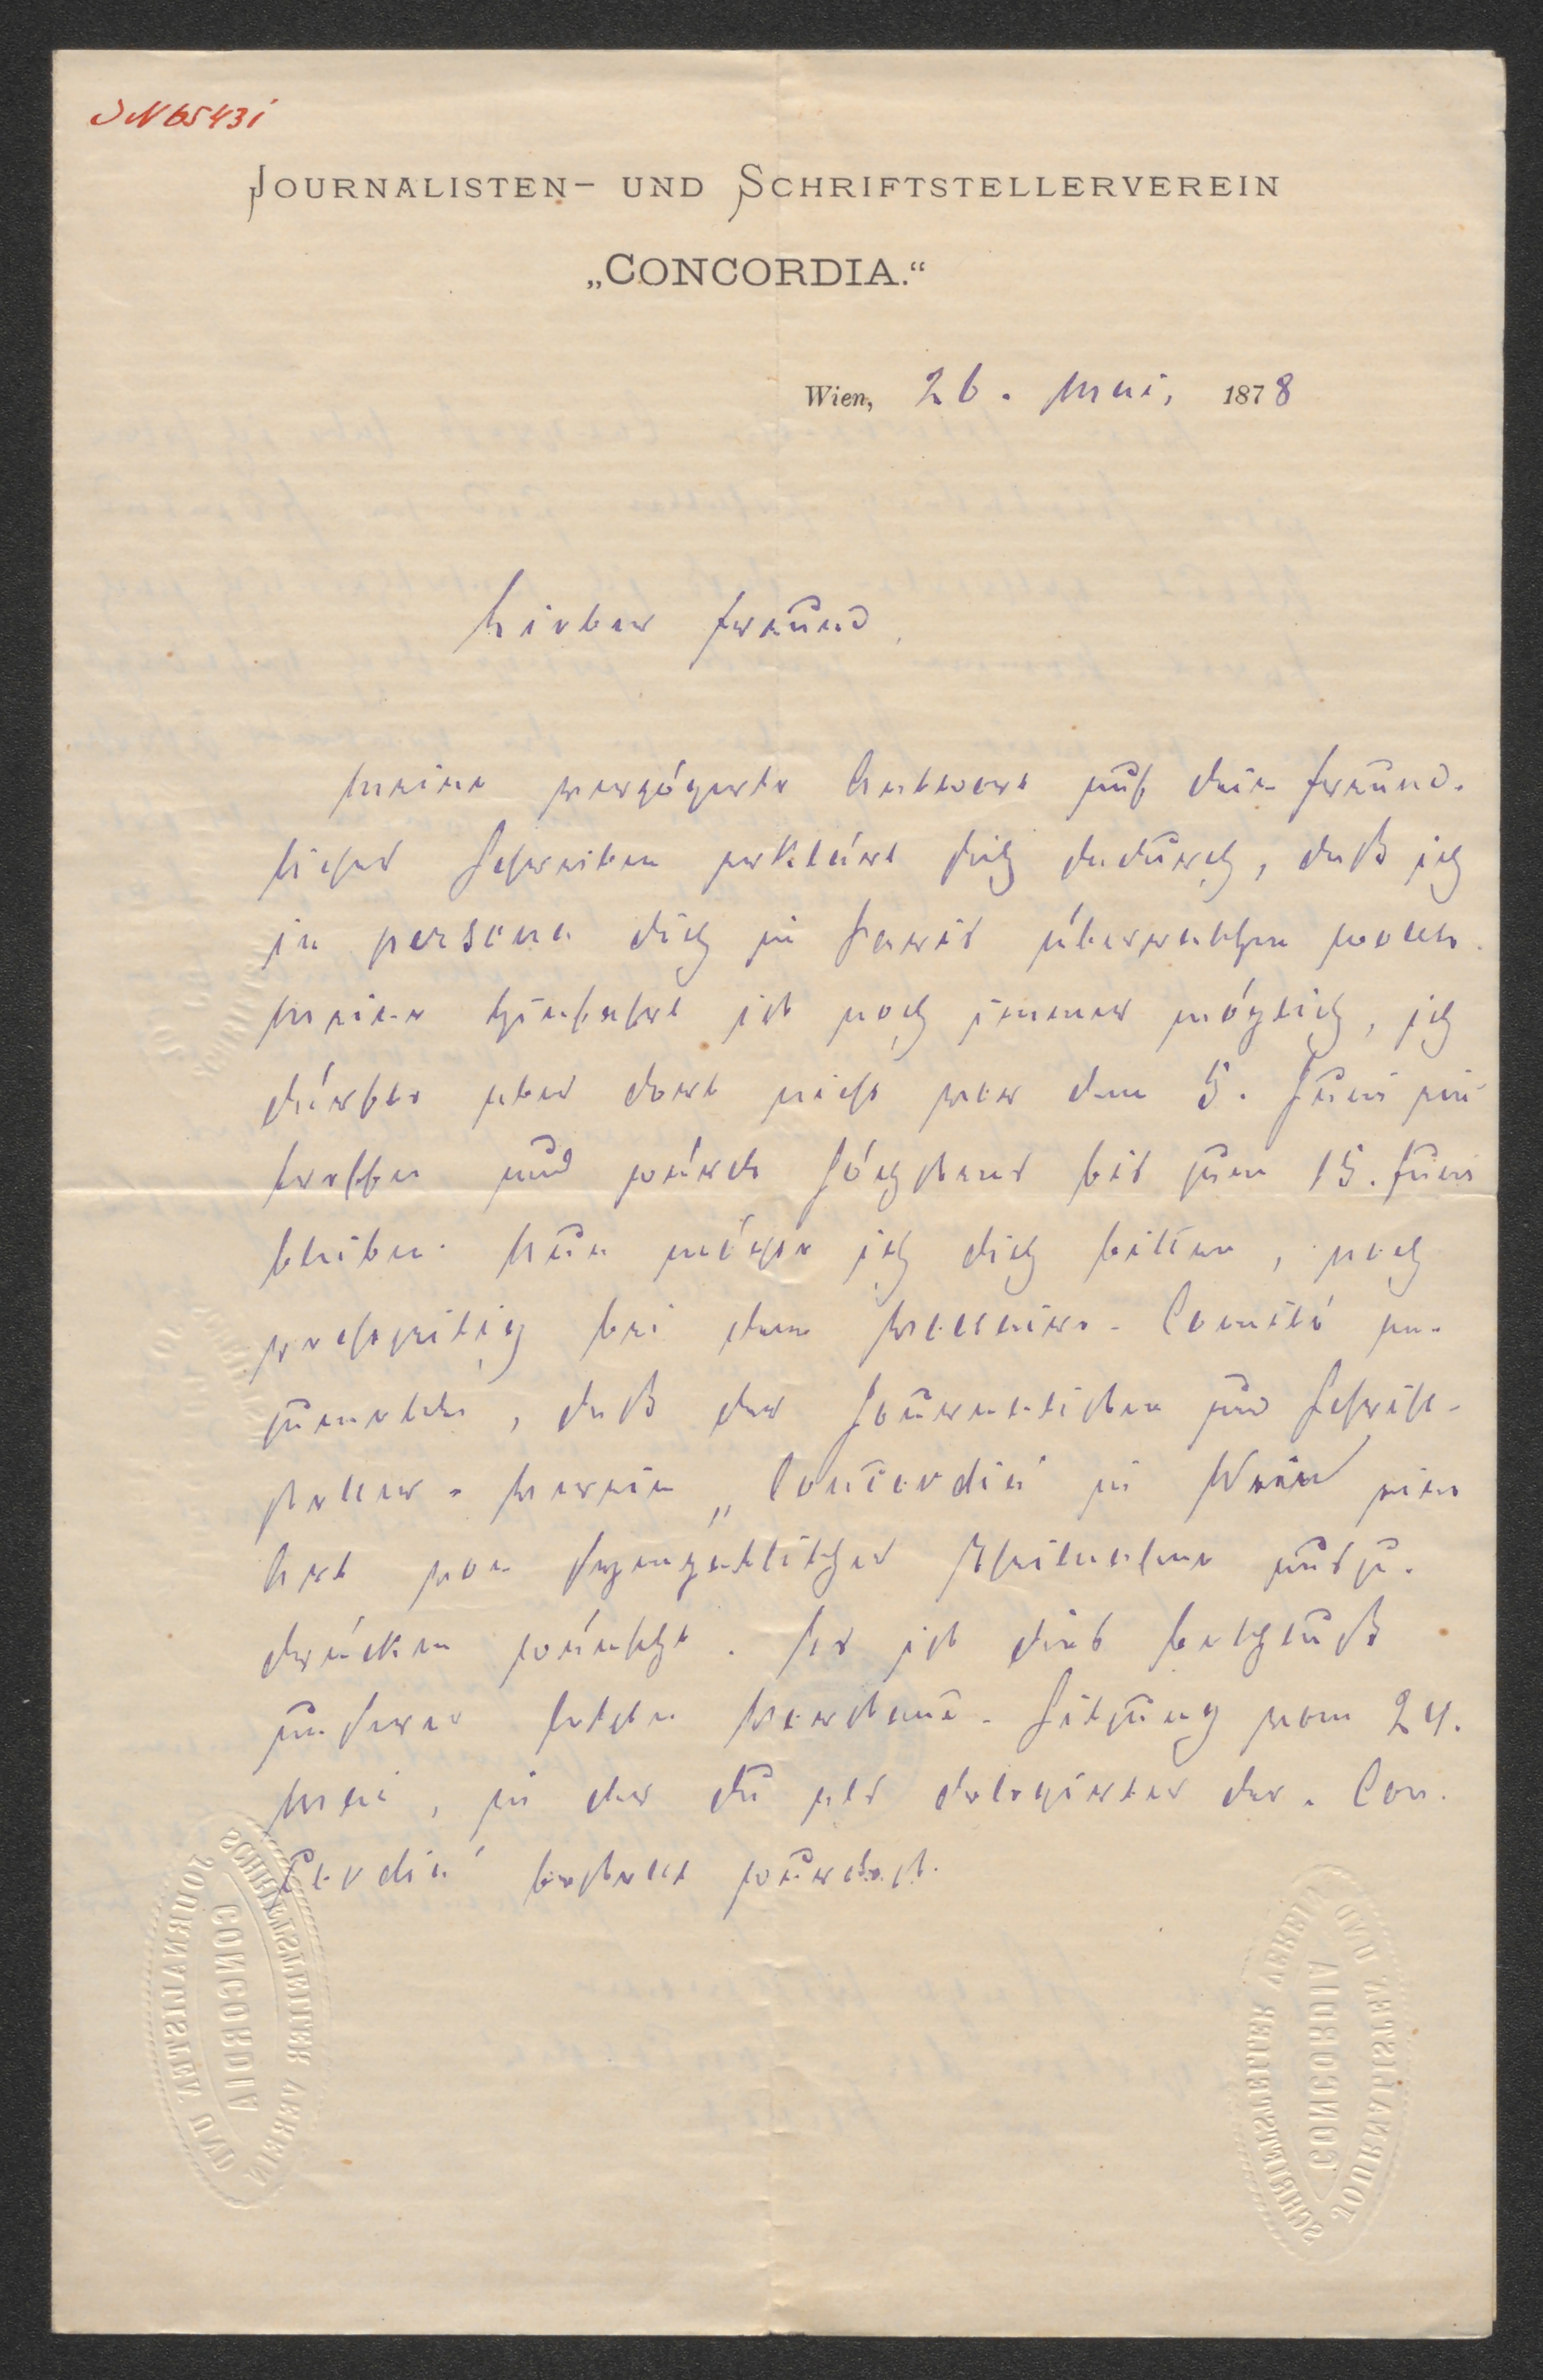 JN 65431
JOURNALISTEN- UND SCHRIFTSTELLERVEREIN
„CONCORDIA.“
Wien, 26. Mai, 1878
Lieber Freund,
Meine verzögerte Antwort auf dein freund-
liches Schreiben erklärt sich dadurch, daß ich
in persona dich in Paris überraschen wollte.
Meine Hinfahrt ist noch immer möglich, ich
dürfte aber dort nicht vor dem 5. Juni ein
treffen und würde höchstens bis zum 15. Juni
bleiben. Nun möchte ich dich bitten, noch
rechtzeitig bei dem Voltaire-Comité an-
zumelden, daß der Journalisten und Schrift-
steller-Verein „Concordia“ in Wien eine
Art von sympathischer Theilnahme auszu-
drücken wünscht. Es ist dies Beschluß
unserer letzten Vorstand-Sitzung vom 24.
Mai, in der du als Delegirter der „Con-
cordia“ bestellt wurdest.
JOURNALISTEN UND
SCHRIFTSTELLER VEREIN
CONCORDIA
JOURNALISTEN UND
SCHRIFTSTELLER VEREIN
CONCORDIA